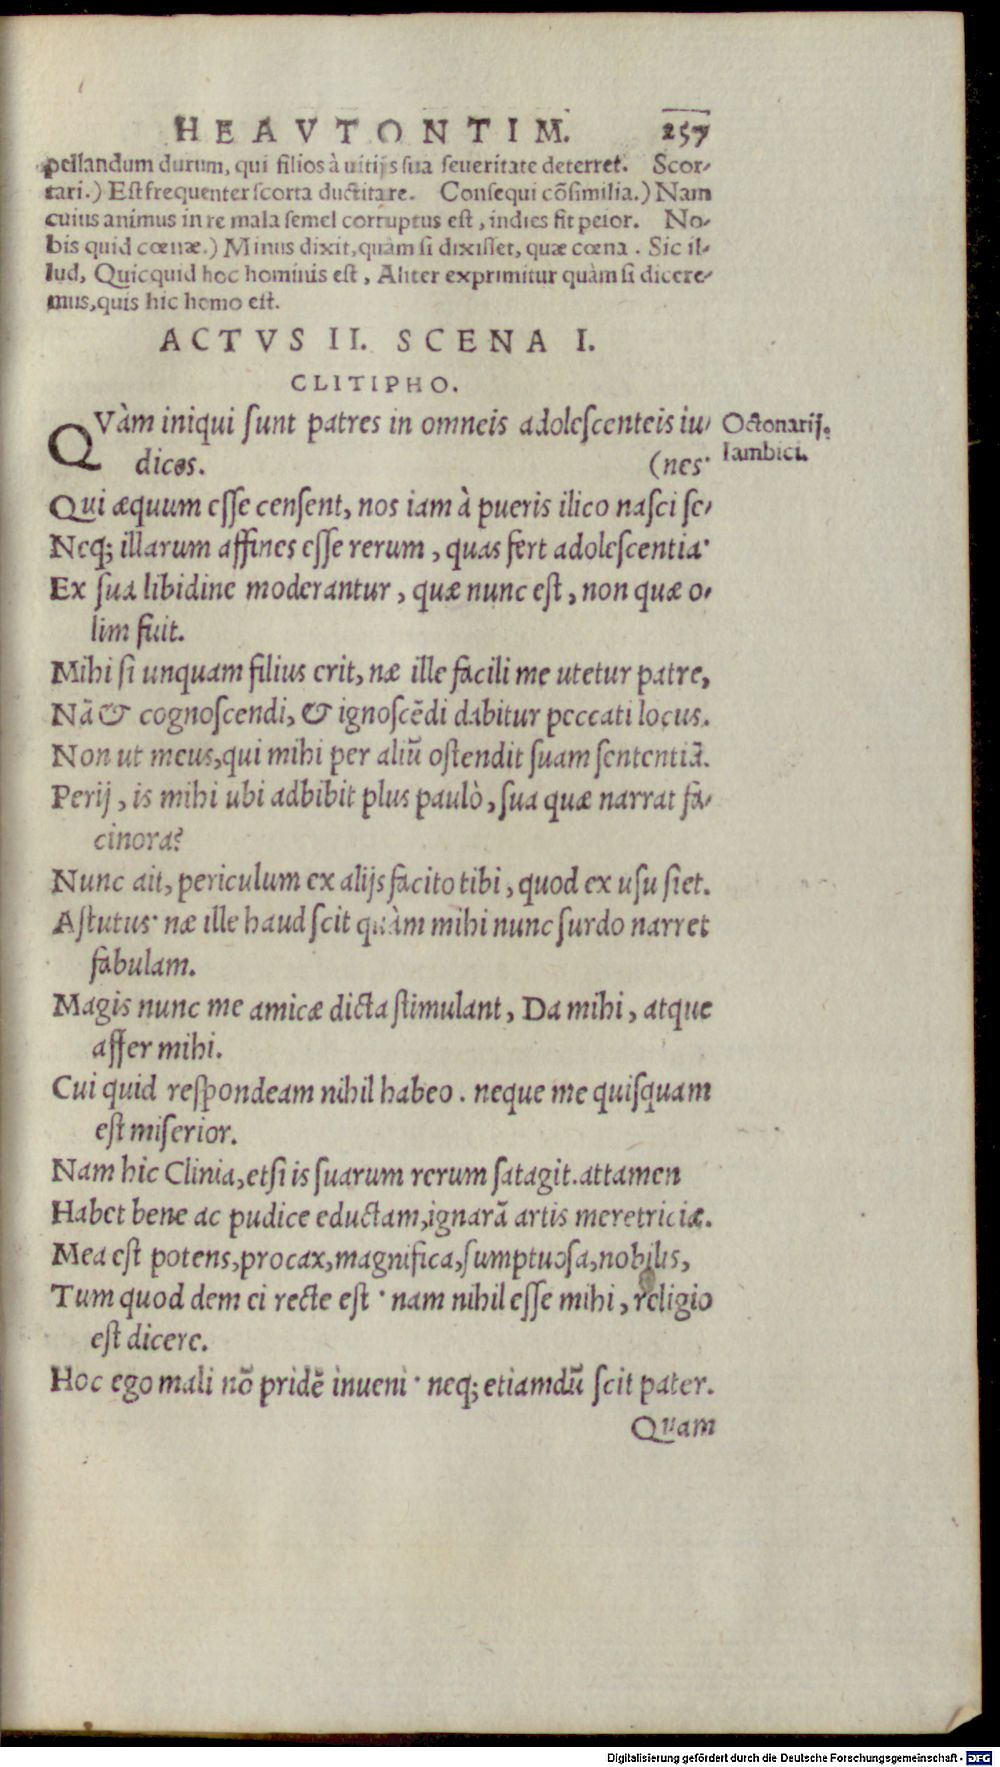 HEAVTONTIM. 257
pellandum durum, qui filios à uitijs sua seueritate deterret. Scor-
tari.) Est frequenter scorta ductitare. Consequi cõsimilia.) Nam
cuius animus in re mala semel corruptus est, indies fit peior. No-
bis quid cœnæ.) Minus dixit, quàm si dixisset, quæ cœna. Sic il-
lud, Quicquid hoc hominis est, Aliter exprimitur quàm si dicere-
mus, quis hic homo est.
ACTVS II. SCENA I.
CLITIPHO.
QVàm iniqui sunt patres in omneis adolescenteis iu- Octonarij.
dices. (nes· Iambici.
Qui æquum esse censent, nos iam à pueris ilico nasci se-
Neq; illarum affines esse rerum, quas fert adolescentia·
Ex sua libidine moderantur, quæ nunc est, non quæ o-
lim fuit.
Mihi si unquam filius erit, næ ille facili me utetur patre,
Nã & cognoscendi, & ignoscẽdi dabitur peccati locus.
Non ut meus, qui mihi per aliũ ostendit suam sententiã.
Perij, is mihi ubi adbibit plus paulò, sua quæ narrat fa-
cinora?
Nunc ait, periculum ex alijs facito tibi, quod ex usu siet.
Astutus· næ ille haud scit quàm mihi nunc surdo narret
fabulam.
Magis nunc me amicæ dicta stimulant, Da mihi, atque
affer mihi.
Cui quid respondeam nihil habeo. neque me quisquam
est miserior.
Nam hic Clinia, etsi is suarum rerum satagit. attamen
Habet bene ac pudice eductam, ignarã artis meretriciæ.
Mea est potens, procax, magnifica, sumptuosa, nobilis,
Tum quod dem ei recte est· nam nihil esse mihi, religio
est dicere.
Hoc ego mali nõ pridẽ inueni· neq; etiamdũ scit pater.
Quam
Digitalisierung gefördert durch die Deutsche Forschungsgemeinschaft - DFG